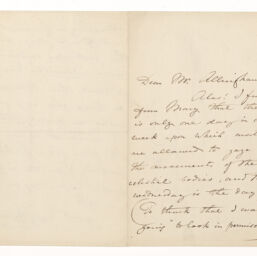 Dear Mr. Allingham
Alas! I f
from Mary that th
is only one day in
week upon which mo
are allowed to gaze
the movements of the
celestial bodies, and
Wednesday is the day
(To think that I was
going to look in